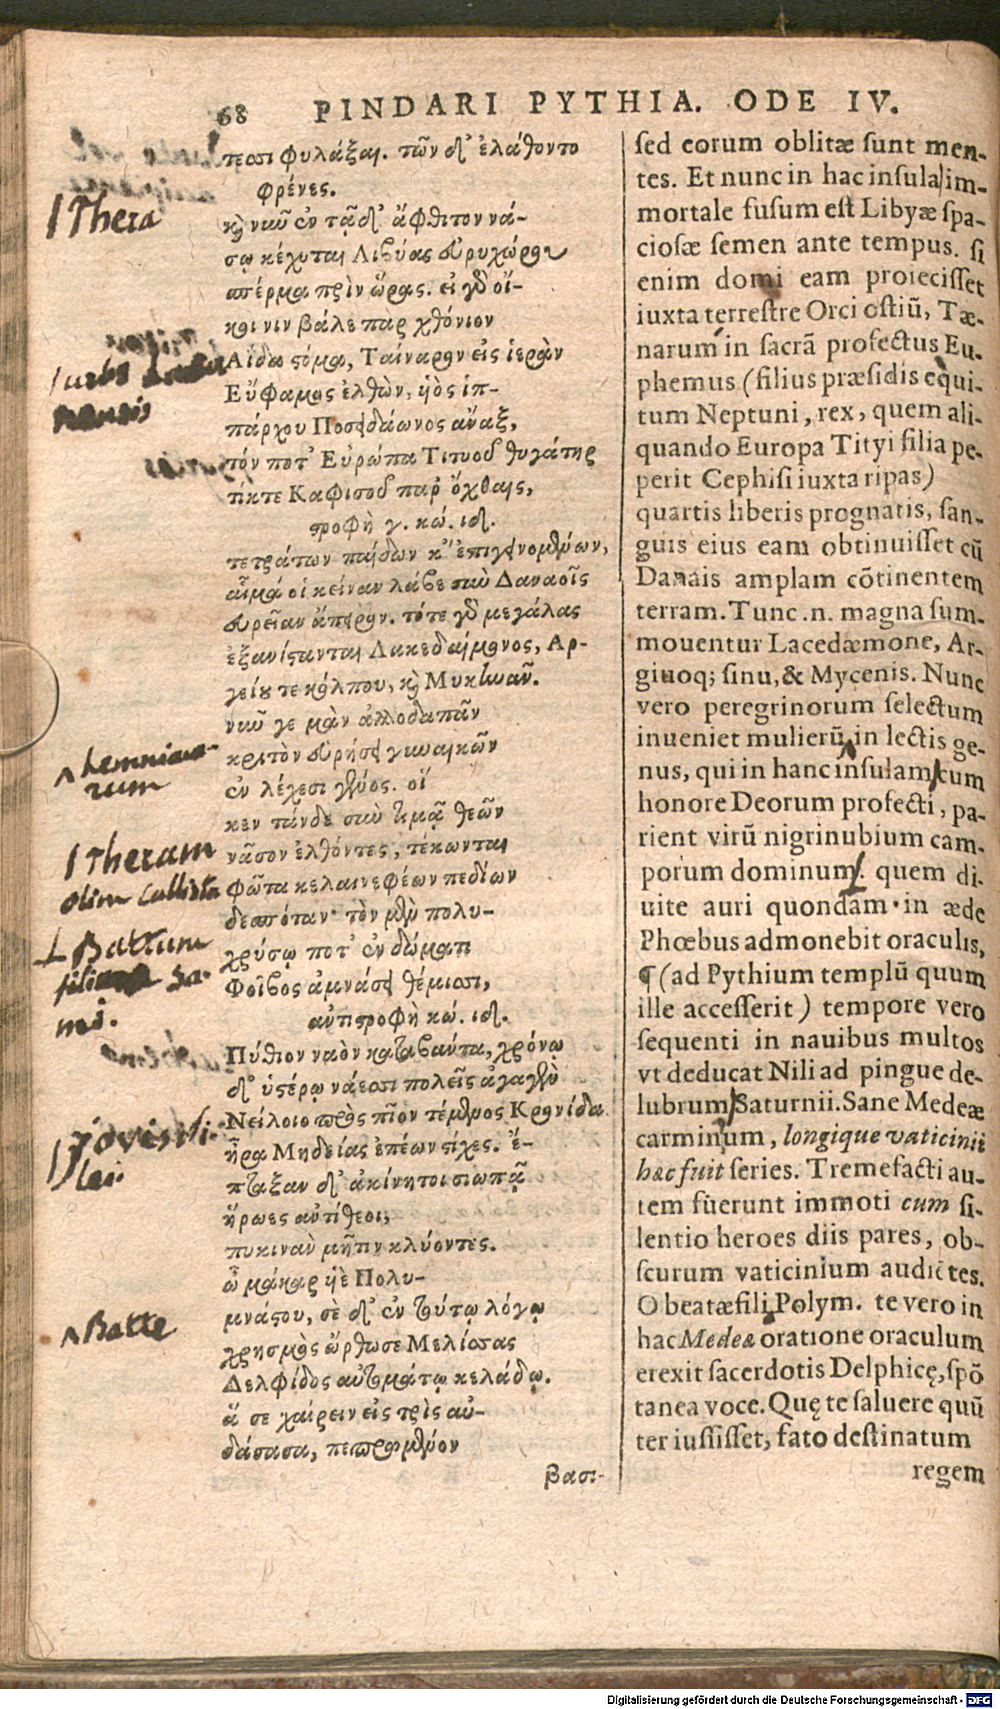 68 PINDARI PYTHIA. ODE IV.
τεσσι φυλάξαι. τῶν δ' ἐλάθοντο
φρένες.
καὶ νῦν ἐν τᾷ δ' ἄφθιτον νά-
σῳ κέχυται Λιβύας εὐρυχόρου
σπέρμα πρὶν ὥρας. εἰ γὸ οἴ-
κοι νιν βάλε παρ χθόνιον
Αἵδα στόμα, Ταίναρον εἰς ἱερὰν
Εὔφαμος ἐλθὼν, ὑὸς ἱπ-
πάρχου Ποσειδάωνος ἄναξ,
τόν ποτ' Εὐρώπα Τιτυοῦ θυγάτηρ
τίκτε Καφισοῦ παρ' ὄχθαις,
στροφὴ γ. κώ. ιδ.
τετράτων παίδων κ' ἐπιγεινομένων,
αἷμά οἱ κείναν λάβε σὺν Δαναοῖς
εὐρεῖαν ἄπειρον. τότε γὸ μεγάλας
ἐξανίστανται Λακεδαίμονος, Αρ-
γείου τε κόλπου, καὶ Μυκηνᾶν.
νῦν γε μὰν ἀλλοδαπᾶν
κριτὸν εὑρήσει γυναικῶν
ἐν λέχεσι γένος. οἵ
κεν τάνδε σὺν τιμᾷ θεῶν
νᾶσον ἐλθόντες, τέκωνται
φῶτα κελαινεφέων πεδίων
δεσπόταν· τὸν μὲν πολυ-
χρύσῳ ποτ' ἐν δώματι
Φοῖβος ἀμνάσει θέμισσι,
αὐτιστροφὴ κώ. ιδ.
Πύθιον ναὸν καταβαύτα, χρόνῳ
δ' ὑστέρῳ νάεσσι πολεῖς ἀγαγὲν
Νείλοιο πρὸς πῖον τέμενος Κρονίδα
ἦρα Μηδείας ἐπέων στίχες. ἔ-
πταξαν δ' ἀκίνητοι σιωπᾷ
ἥρωες ἀντίθεοι,
πυκινὰν μῆτιν κλύοντες.
ὦ μάκαρ ὑὲ Πολυ-
μνάστου, σὲ δ' ἐν τούτῳ λόγῳ
χρησμὸς ὤρθωσε Μελίσσας
Δελφίδος αὐτομάτῳ κελάδῳ.
ἅ σε χαίρειν εἰς τρὶς αὐ-
δάσασα, πεπρωμένον
βασι-
sed eorum oblitæ sunt men-
tes. Et nunc in hac insula im-
mortale fusum est Libyæ spa-
ciosæ semen ante tempus. si
enim domi eam proiecisset
iuxta terrestre Orci ostiũ, Tæ-
narum in sacrã profectus Eu-
phemus (filius præsidis equi-
tum Neptuni, rex, quem ali-
quando Europa Tityi filia pe-
perit Cephisi iuxta ripas)
quartis liberis prognatis, san-
guis eius eam obtinuisset cũ
Danais amplam cõtinentem
terram. Tunc .n. magna sum-
mouentur Lacedæmone, Ar-
giuoq; sinu, & Mycenis. Nunc
vero peregrinorum selectum
inueniet mulierũ in lectis ge-
nus, qui in hanc insulam cum
honore Deorum profecti, pa-
rient virũ nigrinubium cam-
porum dominum. quem di-
uite auri quondam in æde
Phœbus admonebit oraculis,
¶ (ad Pythium templũ quum
ille accesserit) tempore vero
sequenti in nauibus multos
vt deducat Nili ad pingue de-
lubrum Saturnii. Sane Medeæ
carminum, longique vaticinii
hæc fuit series. Tremefacti au-
tem fuerunt immoti cum si-
lentio heroes diis pares, ob-
scurum vaticinium audiẽtes.
O beatæ fili Polym. te vero in
hac Medeæ oratione oraculum
erexit sacerdotis Delphicę, spõ
tanea voce. Quę te saluere quũ
ter iussisset, fato destinatum
regem
Thera
Lemniaca-
rum
Theram
olim Callista
Battum
filium Sa-
mi.
Jovis Ni-
lei
Batte
Digitalisierung gefördert durch die Deutsche Forschungsgemeinschaft - DFG